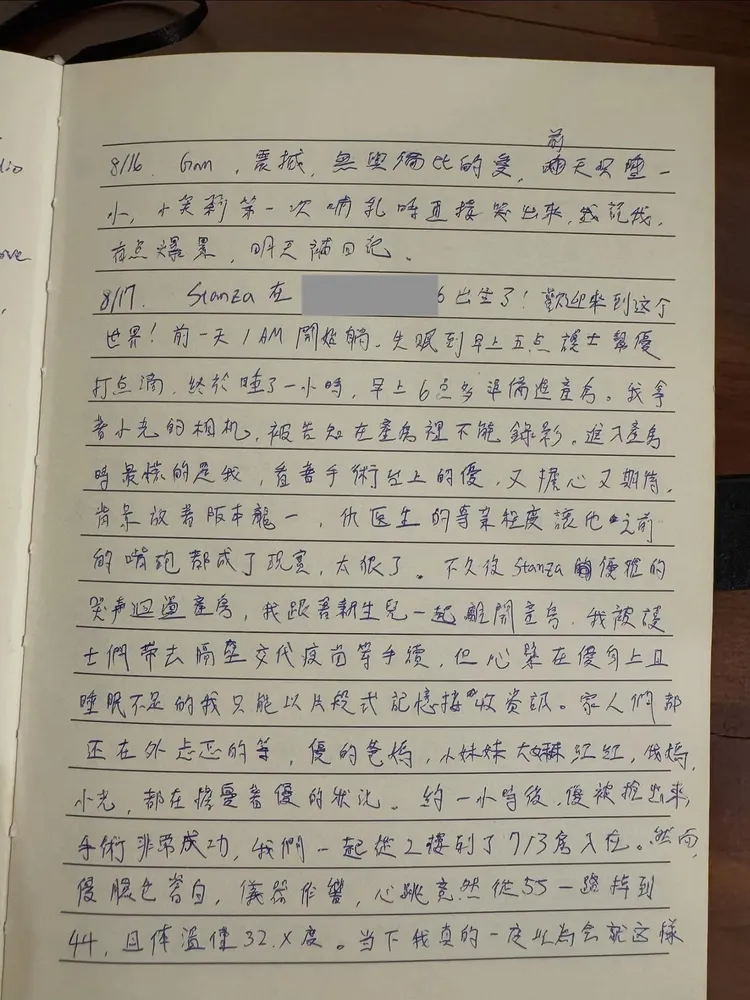 dio
ove
前
8/16. Gnn,震撼,無與倫比的愛,兩天只睡一
小,小茉莉第一次哺乳時直接哭出來,我記錄,
有点爆累,明天補日記。
8/17. Stanza 在 6 出生了!歡迎來到这个
世界!前一天 1 AM 開始躺,失眠到早上五点護士幫優
打点滴,終於睡了一小時,早上6点多準備進產房。我拿
著小光的相机,被告知在產房裡不能錄影。進入產房
時最慌的是我,看著手術台上的優,又擔心又期待,
背景放著阪本龍一,仇医生的專業程度讓他之前
的嘴砲都成了現實,太狠了。不久後Stanza 的
哭声迴盪產房,我跟著新生兒一起離開產房,我被護
士們帶去隔壁交代疫苗等手續,但心繫在優身上且
睡眠不足的我只能以片段式記憶接收資訊。家人們都
还在外忐忑的等,優的爸媽,小妹妹 紅紅,我媽,
小光,都在擔憂著優的狀況。約一小時後,優被推出來,
手術非常成功,我們一起從2樓到了713房入住。然而,
優臉色蒼白,儀器作響,心跳竟然從55一路掉到
44,且体溫僅32.X度。當下我真的一度以為会就这樣